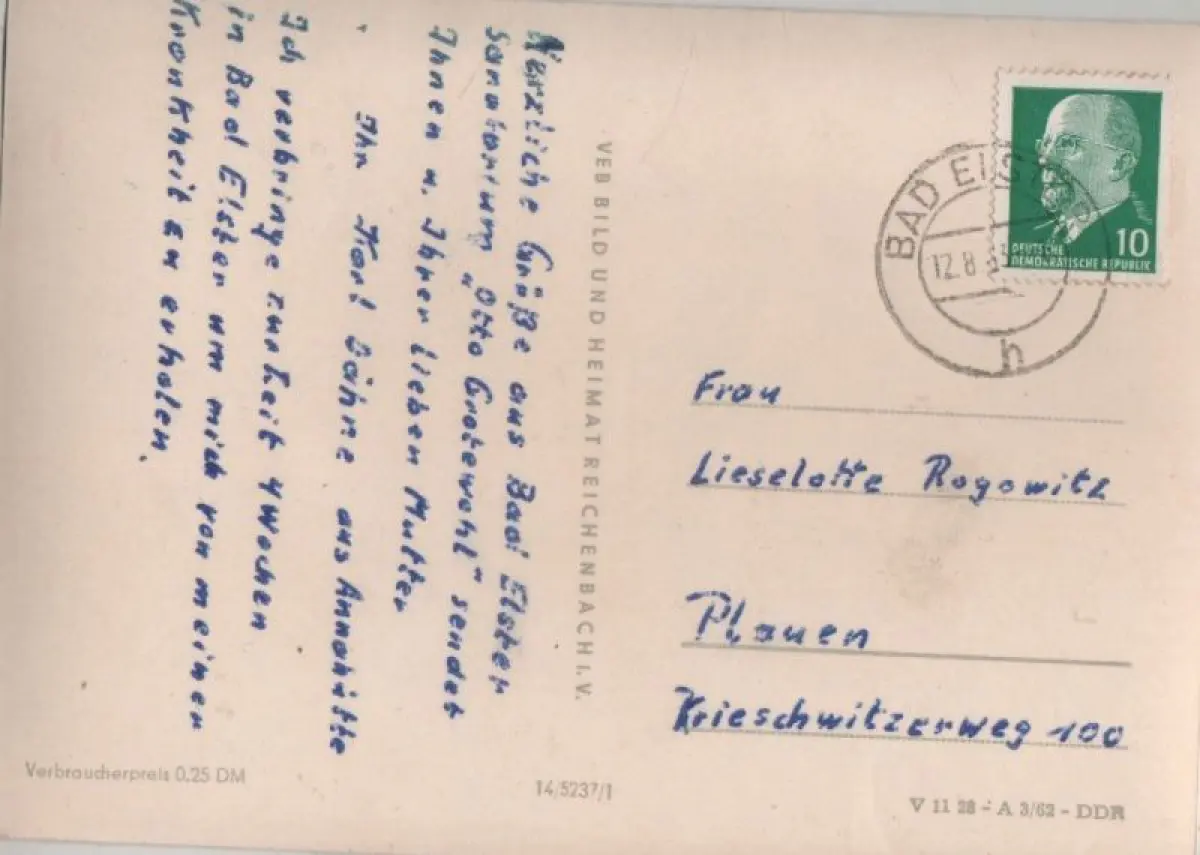 Herzliche Grüße aus Bad Elster
Sanatorium „Otto Grotewohl" sendet
Ihnen u. Ihrer lieben Mutter
Ihr Karl Dähne aus Annahütte
Ich verbringe zurZeit 4 Wochen
in Bad Elster um mich von meiner
Krankheit zu erholen.
VEB BILD UND HEIMAT REICHENBACH I. V.
BAD ELST
12.8
h
10
DEUTSCHE
DEMOKRATISCHE REPUBLIK
Frau
Lieselotte Rogowitz
Plauen
Krieschwitzerweg 100
Verbraucherpreis 0,25 DM
14/5237/1
V 11 28 - A 3/62 - DDR